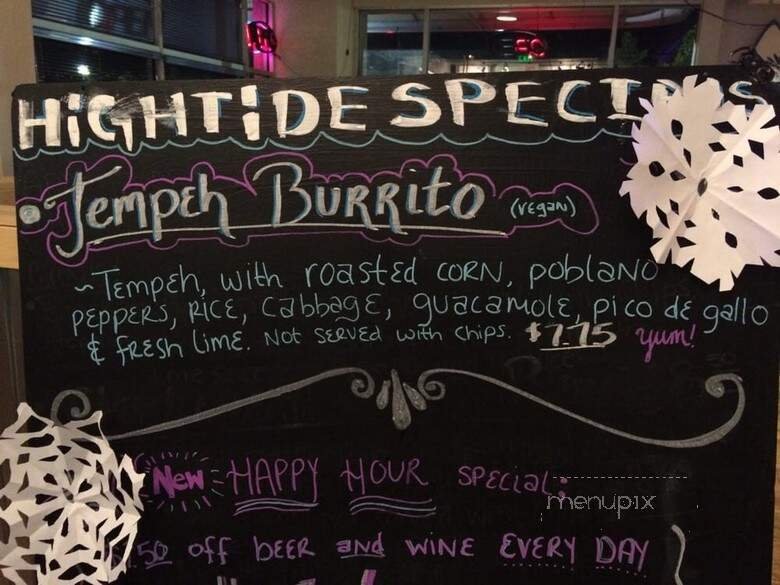 HIGHTIDE
• Tempeh Burrito (vegan)
~ Tempeh, with roasted corn, poblano
peppers, rice, cabbage, guacamole, pico de gallo
& fresh lime. Not served with chips. $7.75 Yum!
New HAPPY HOUR special:
menupix
off beer and wine EVERY DAY